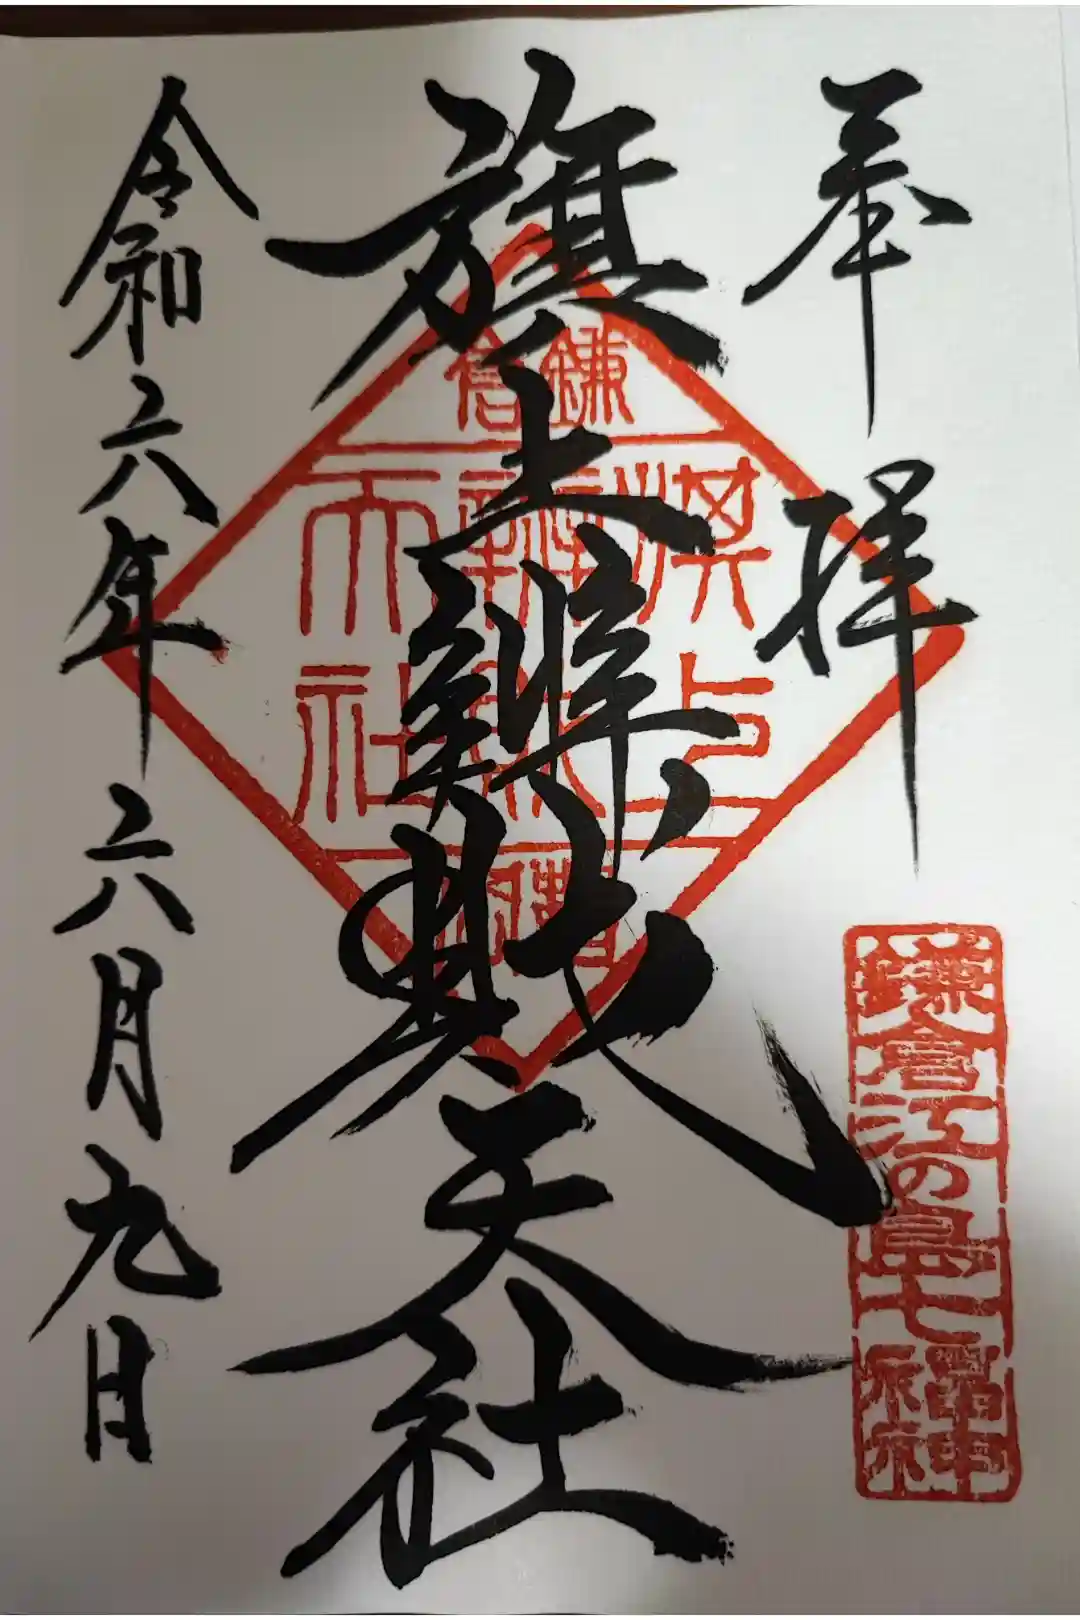 奉拝
旗上辨財天社
鎌倉
旗上
辨財
天社
鎌倉江の島七福神
令和六年六月九日